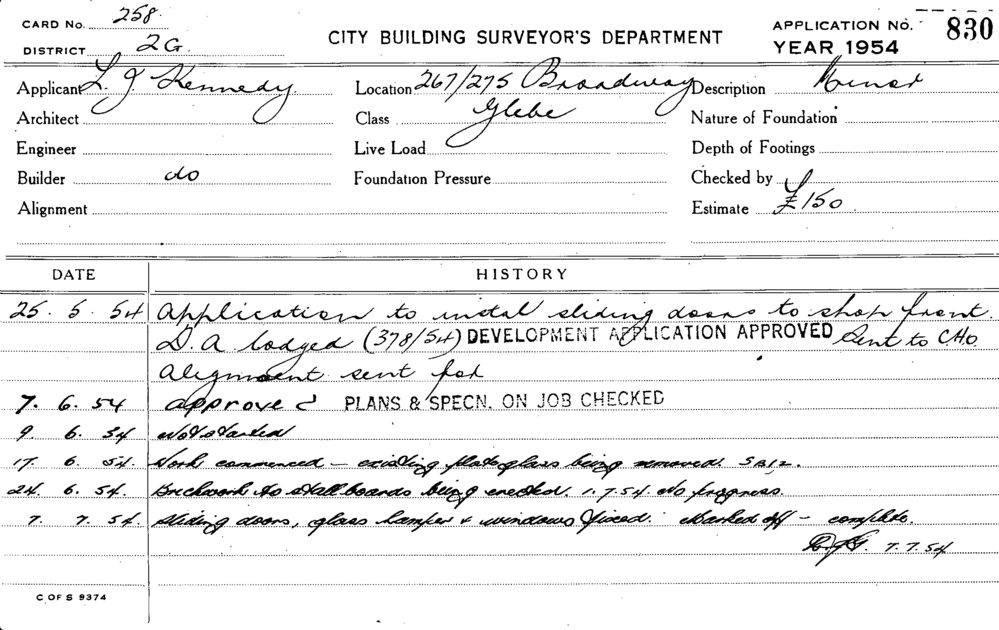 CARD No. 258
DISTRICT 2G
CITY BUILDING SURVEYOR'S DEPARTMENT
APPLICATION No. 830
YEAR 1954
Applicant L. J Kennedy Location 267/275 Broadway Description Minor
Architect Class Glebe Nature of Foundation
Engineer Live Load Depth of Footings
Builder do Foundation Pressure Checked by
Alignment Estimate £150
DATE HISTORY
25. 5. 54 Application to instal sliding doors to shop front.
D.A lodged (378/54) DEVELOPMENT APPLICATION APPROVED Sent to CHO
Alignment sent for
7. 6. 54 approved PLANS & SPECN. ON JOB CHECKED
9 6. 54 Not started
17. 6. 54. Work commenced – existing plate glass being removed.
24. 6. 54. Brickwork to stall boards being erected. 1.7.54. No progress.
7. 7. 54. Sliding doors, glass hamper & windows fixed. Marked off – complete.
7.7.54
C OF S 9374